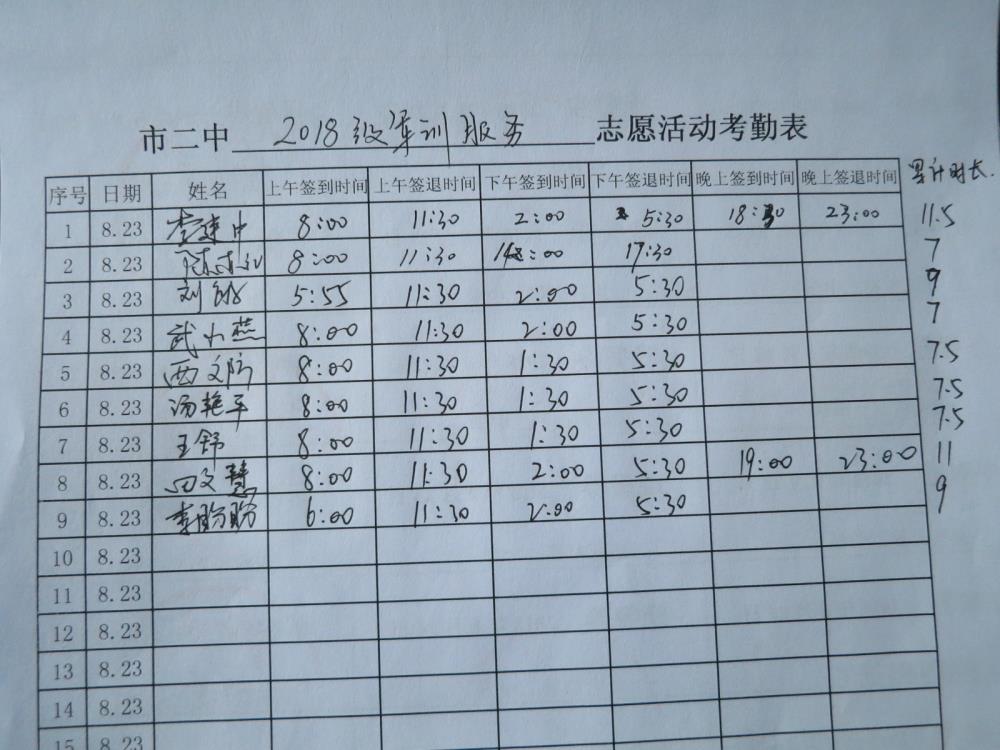 市二中 2018级军训服务 志愿活动考勤表
序号 日期 姓名 上午签到时间 上午签退时间 下午签到时间 下午签退时间 晚上签到时间 晚上签退时间 累计时长.
1 8.23 李建中 8:00 11:30 2:00 5:30 18:30 23:00 11.5
2 8.23 8:00 11:30 14:00 17:30 7
3 8.23 刘 5:55 11:30 2:00 5:30 9
4 8.23 武小燕 8:00 11:30 2:00 5:30 7
5 8.23 西文防 8:00 11:30 1:30 5:30 7.5
6 8.23 汤艳平 8:00 11:30 1:30 5:30 7.5
7 8.23 王舒 8:00 11:30 1:30 5:30 7.5
8 8.23 田文慧 8:00 11:30 2:00 5:30 19:00 23:00 11
9 8.23 李盼盼 6:00 11:30 2:00 5:30 9
10 8.23
11 8.23
12 8.23
13 8.23
14 8.23
15 8.23